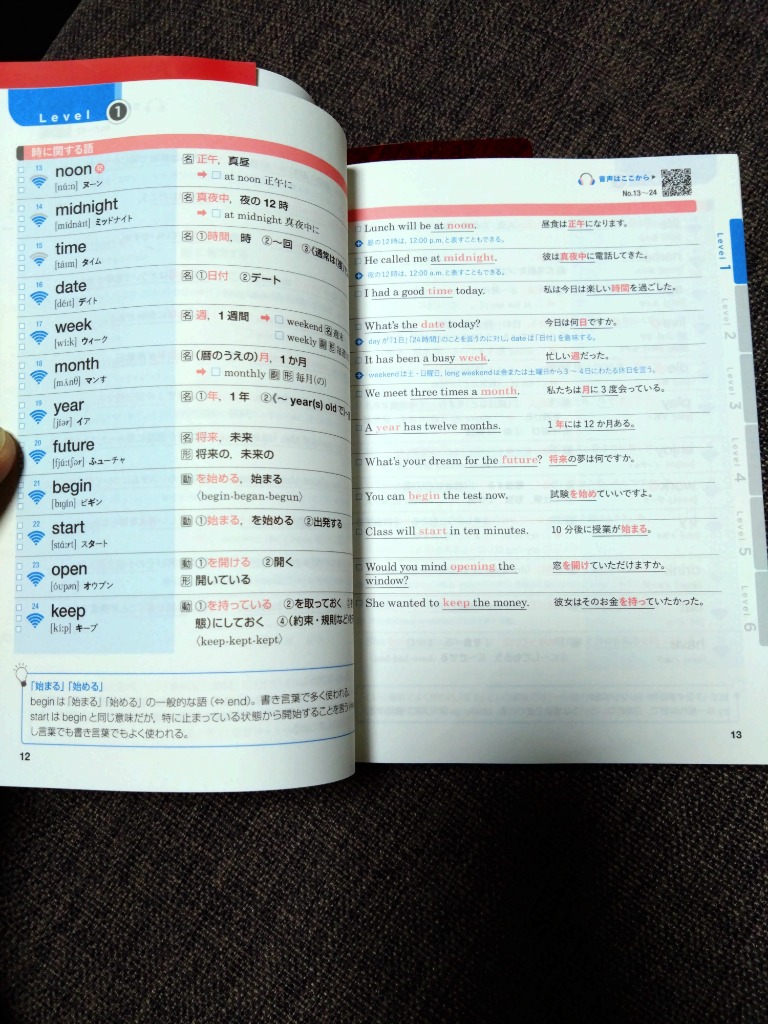 Level 1
時に関する語
13
noon
[núːn] ヌーン
名 正午, 真昼
➡ □ at noon 正午に
14
midnight
[mídnàit] ミッドナイト
名 真夜中, 夜の12時
➡ □ at midnight 真夜中に
15
time
[táim] タイム
名 ①時間, 時 ②〜回 ③《通常は
16
date
[déit] デイト
名 ①日付 ②デート
17
week
[wíːk] ウィーク
名 週, 1週間 ➡ □ weekend 名
□ weekly 副 形
18
month
[mʌ́nθ] マンす
名 (暦のうえの)月, 1か月
➡ □ monthly 副 形 毎月(の)
19
year
[jíər] イア
名 ①年, 1年 ②《〜 year(s) oldで》
20
future
[fjúːtʃər] ふューチャ
名 将来, 未来
形 将来の, 未来の
21
begin
[bigín] ビギン
動 を始める, 始まる
〈begin-began-begun〉
22
start
[stáːrt] スタート
動 ①始まる, を始める ②出発する
23
open
[óupən] オウプン
動 ①を開ける ②開く
形 開いている
24
keep
[kíːp] キープ
動 ①を持っている ②を取っておく
態)にしておく ④(約束・規則など
〈keep-kept-kept〉
「始まる」「始める」
beginは「始まる」「始める」の一般的な語(⇔ end)。書き言葉で多く使われる。
startはbeginと同じ意味だが, 特に止まっている状態から開始することを言う
し言葉でも書き言葉でもよく使われる。
12
音声はここから▶
No.13〜24
□ Lunch will be at noon.
昼食は正午になります。
昼の12時は, 12:00 p.m.と表すこともできる。
□ He called me at midnight.
彼は真夜中に電話してきた。
夜の12時は, 12:00 a.m.と表すこともできる。
□ I had a good time today.
私は今日は楽しい時間を過ごした。
□ What's the date today?
今日は何日ですか。
dayが「1日」「24時間」のことを言うのに対し, dateは「日付」を意味する。
□ It has been a busy week.
忙しい週だった。
weekendは土・日曜日, long weekendは金または土曜日から3〜4日にわたる休日を言う。
□ We meet three times a month.
私たちは月に3度会っている。
□ A year has twelve months.
1年には12か月ある。
□ What's your dream for the future?
将来の夢は何ですか。
□ You can begin the test now.
試験を始めていいですよ。
□ Class will start in ten minutes.
10分後に授業が始まる。
□ Would you mind opening the
window?
窓を開けていただけますか。
□ She wanted to keep the money.
彼女はそのお金を持っていたかった。
Level 1
Level 2
Level 3
Level 4
Level 5
Level 6
13